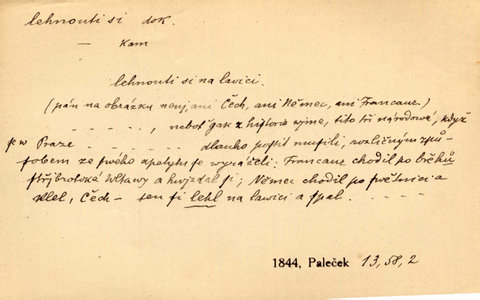 lehnouti si dok.
— kam
lehnouti si na lavici.
(pán na obrázku není ani Čech, ani Němec, ani Francauz.)
. . . . . ., neboť gak z historie wjme, tito tři národowé, když
se w Praze . . . . . . . . dlauho postit musili, rozličným způ-
sobem ze swého apetytu se wyswáčeli: Francauz chodil po břehu
stříbrotoké Wltawy a hwjzdal si; Němec chodil po swětnici a
klel, Čech — ten si lehl na lawici a spal. . . . . .
1844, Paleček 13, 58, 2